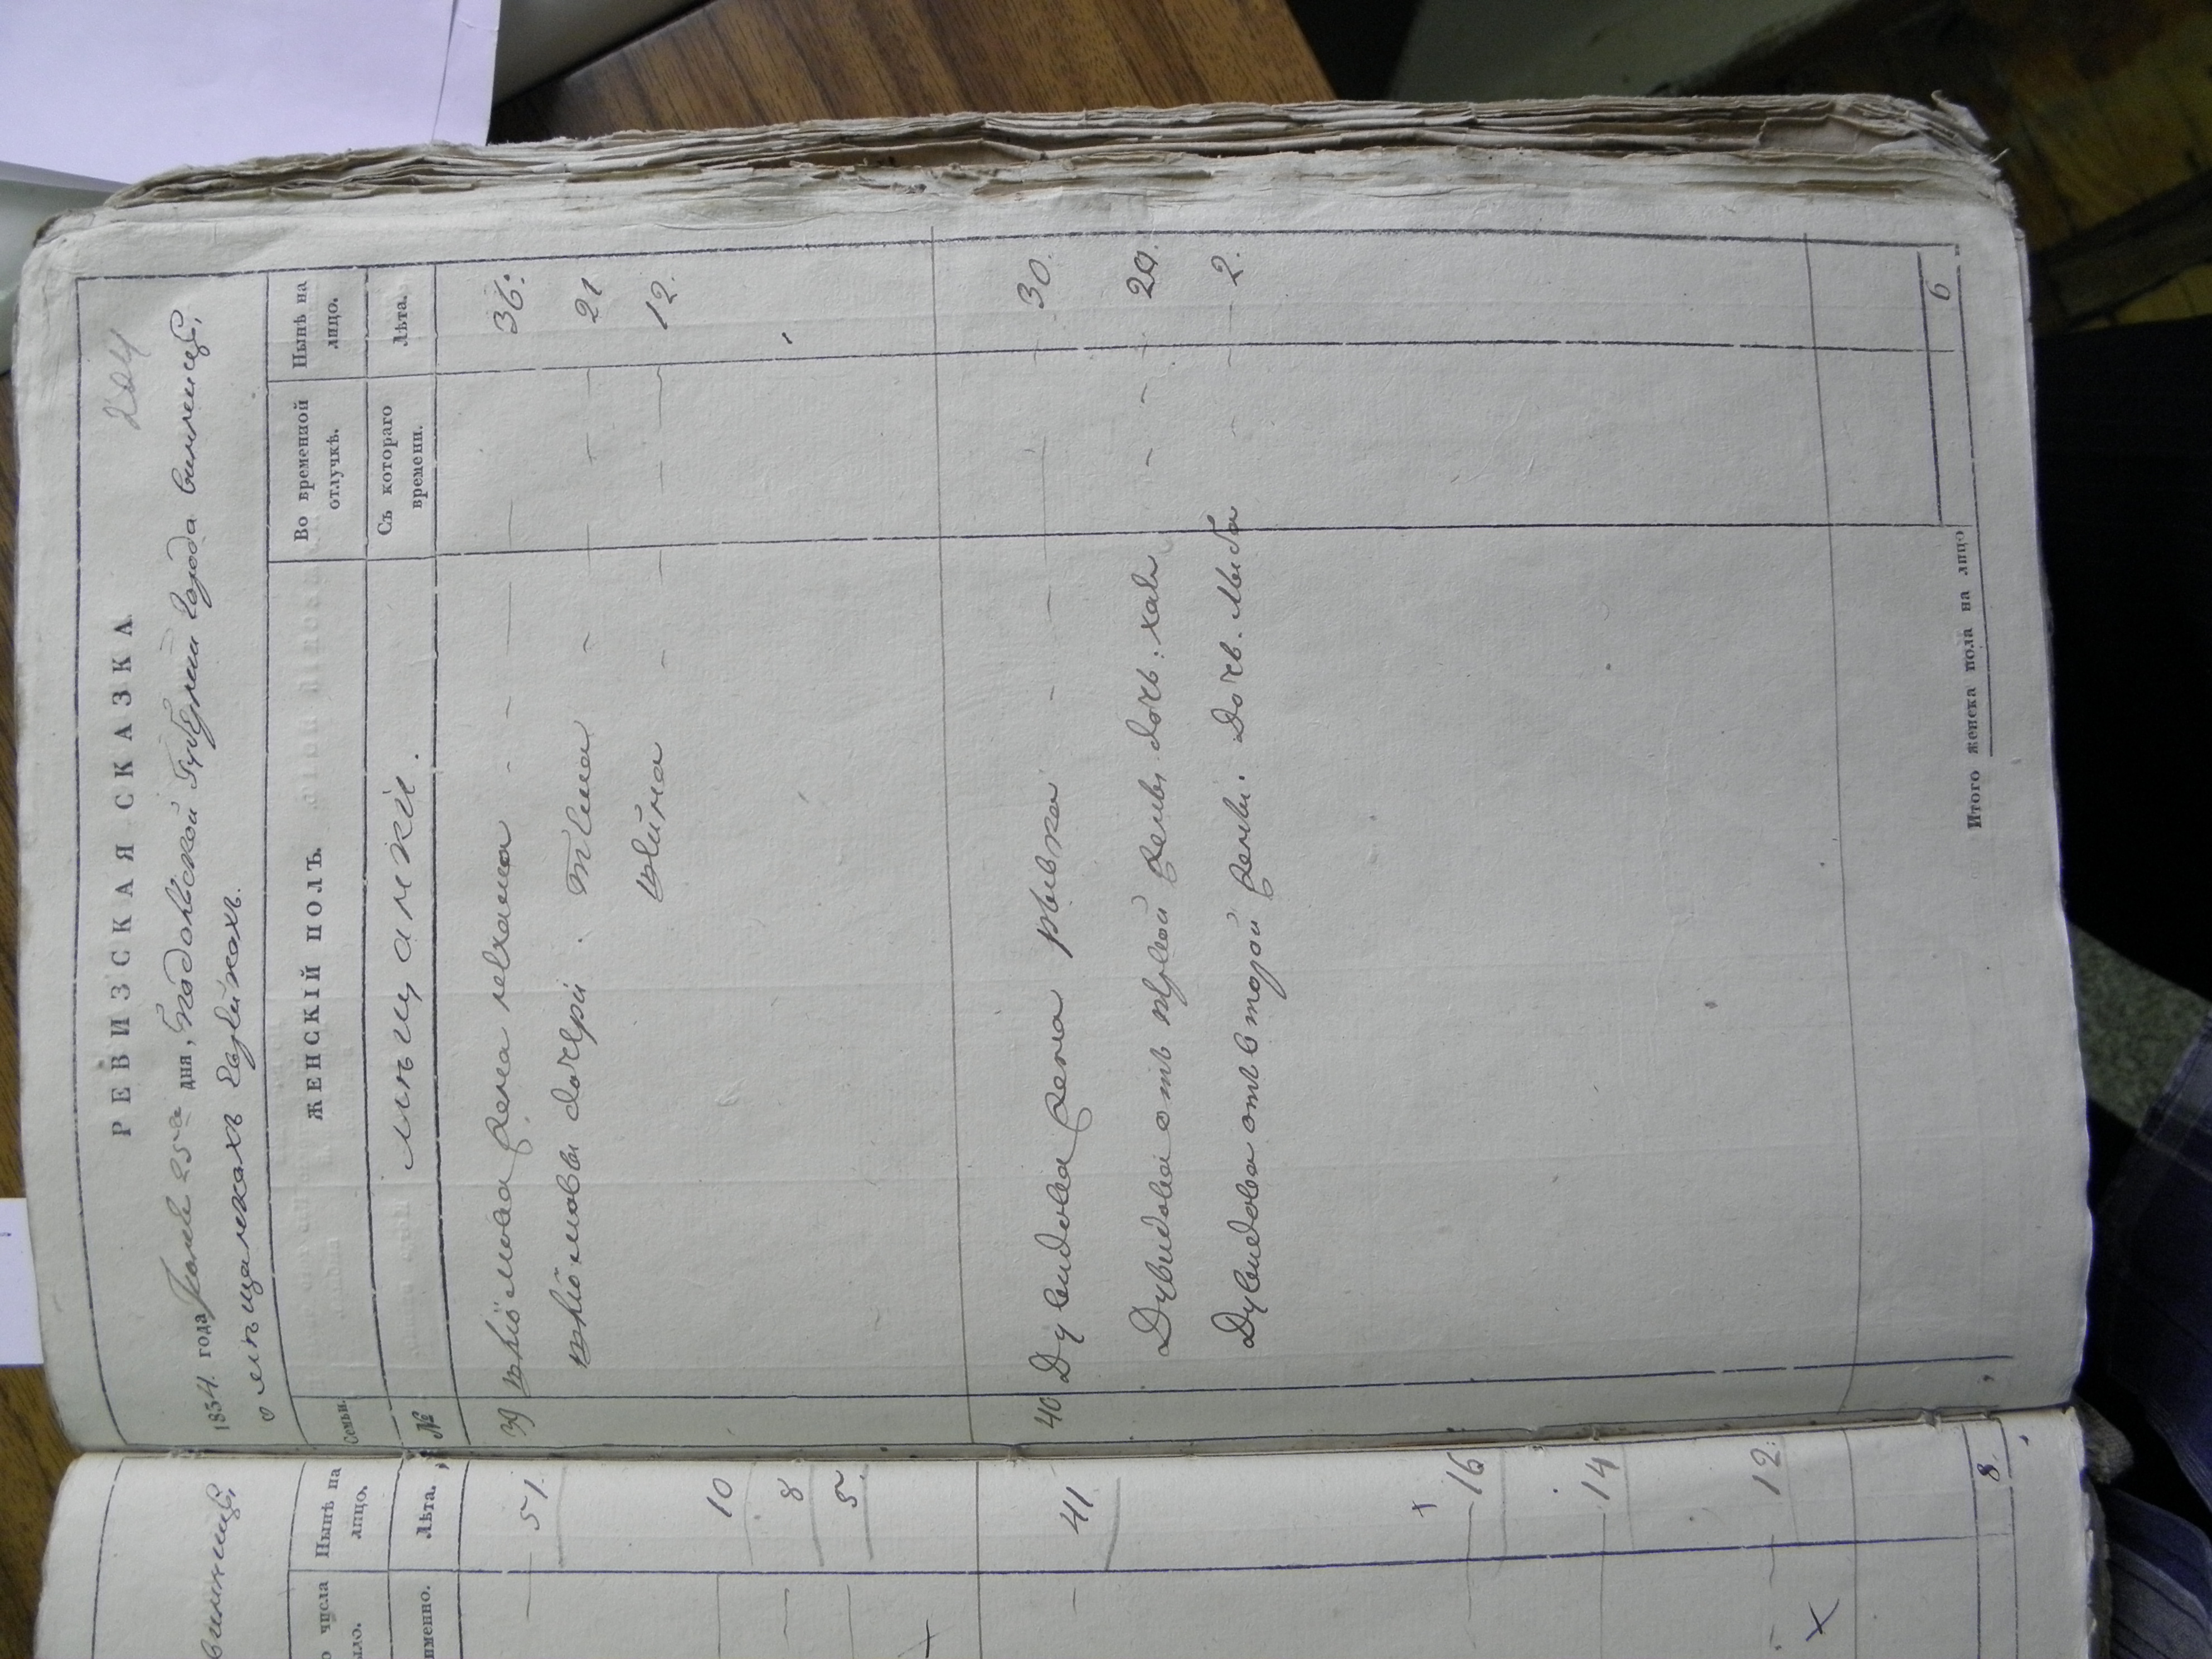 204
РЕВИЗСКАЯ СКАЗКА
1834. года Июня 25го дня, Подольской Губернии Города Винницы,
о мѣщанкахъ Еврейкахъ.
Семьи. ЖЕНСКІЙ ПОЛЪ. Во временной отлучкѣ. Нынѣ на лицо.
№ мѣщанки. Съ котораго времени. Лѣта.
39 жена 36.
дочери 21
12.
40 Дувидова жена рывка 30.
Дувидова отъ первой жены дочь: хая 20.
Дувидова отъ второй жены. Дочь. 2.
Итого женска пола на лицо 6
Винницы,
числа Нынѣ на лицо.
именно. Лѣта.
51.
10
8
5.
41
16
14
12.
8.